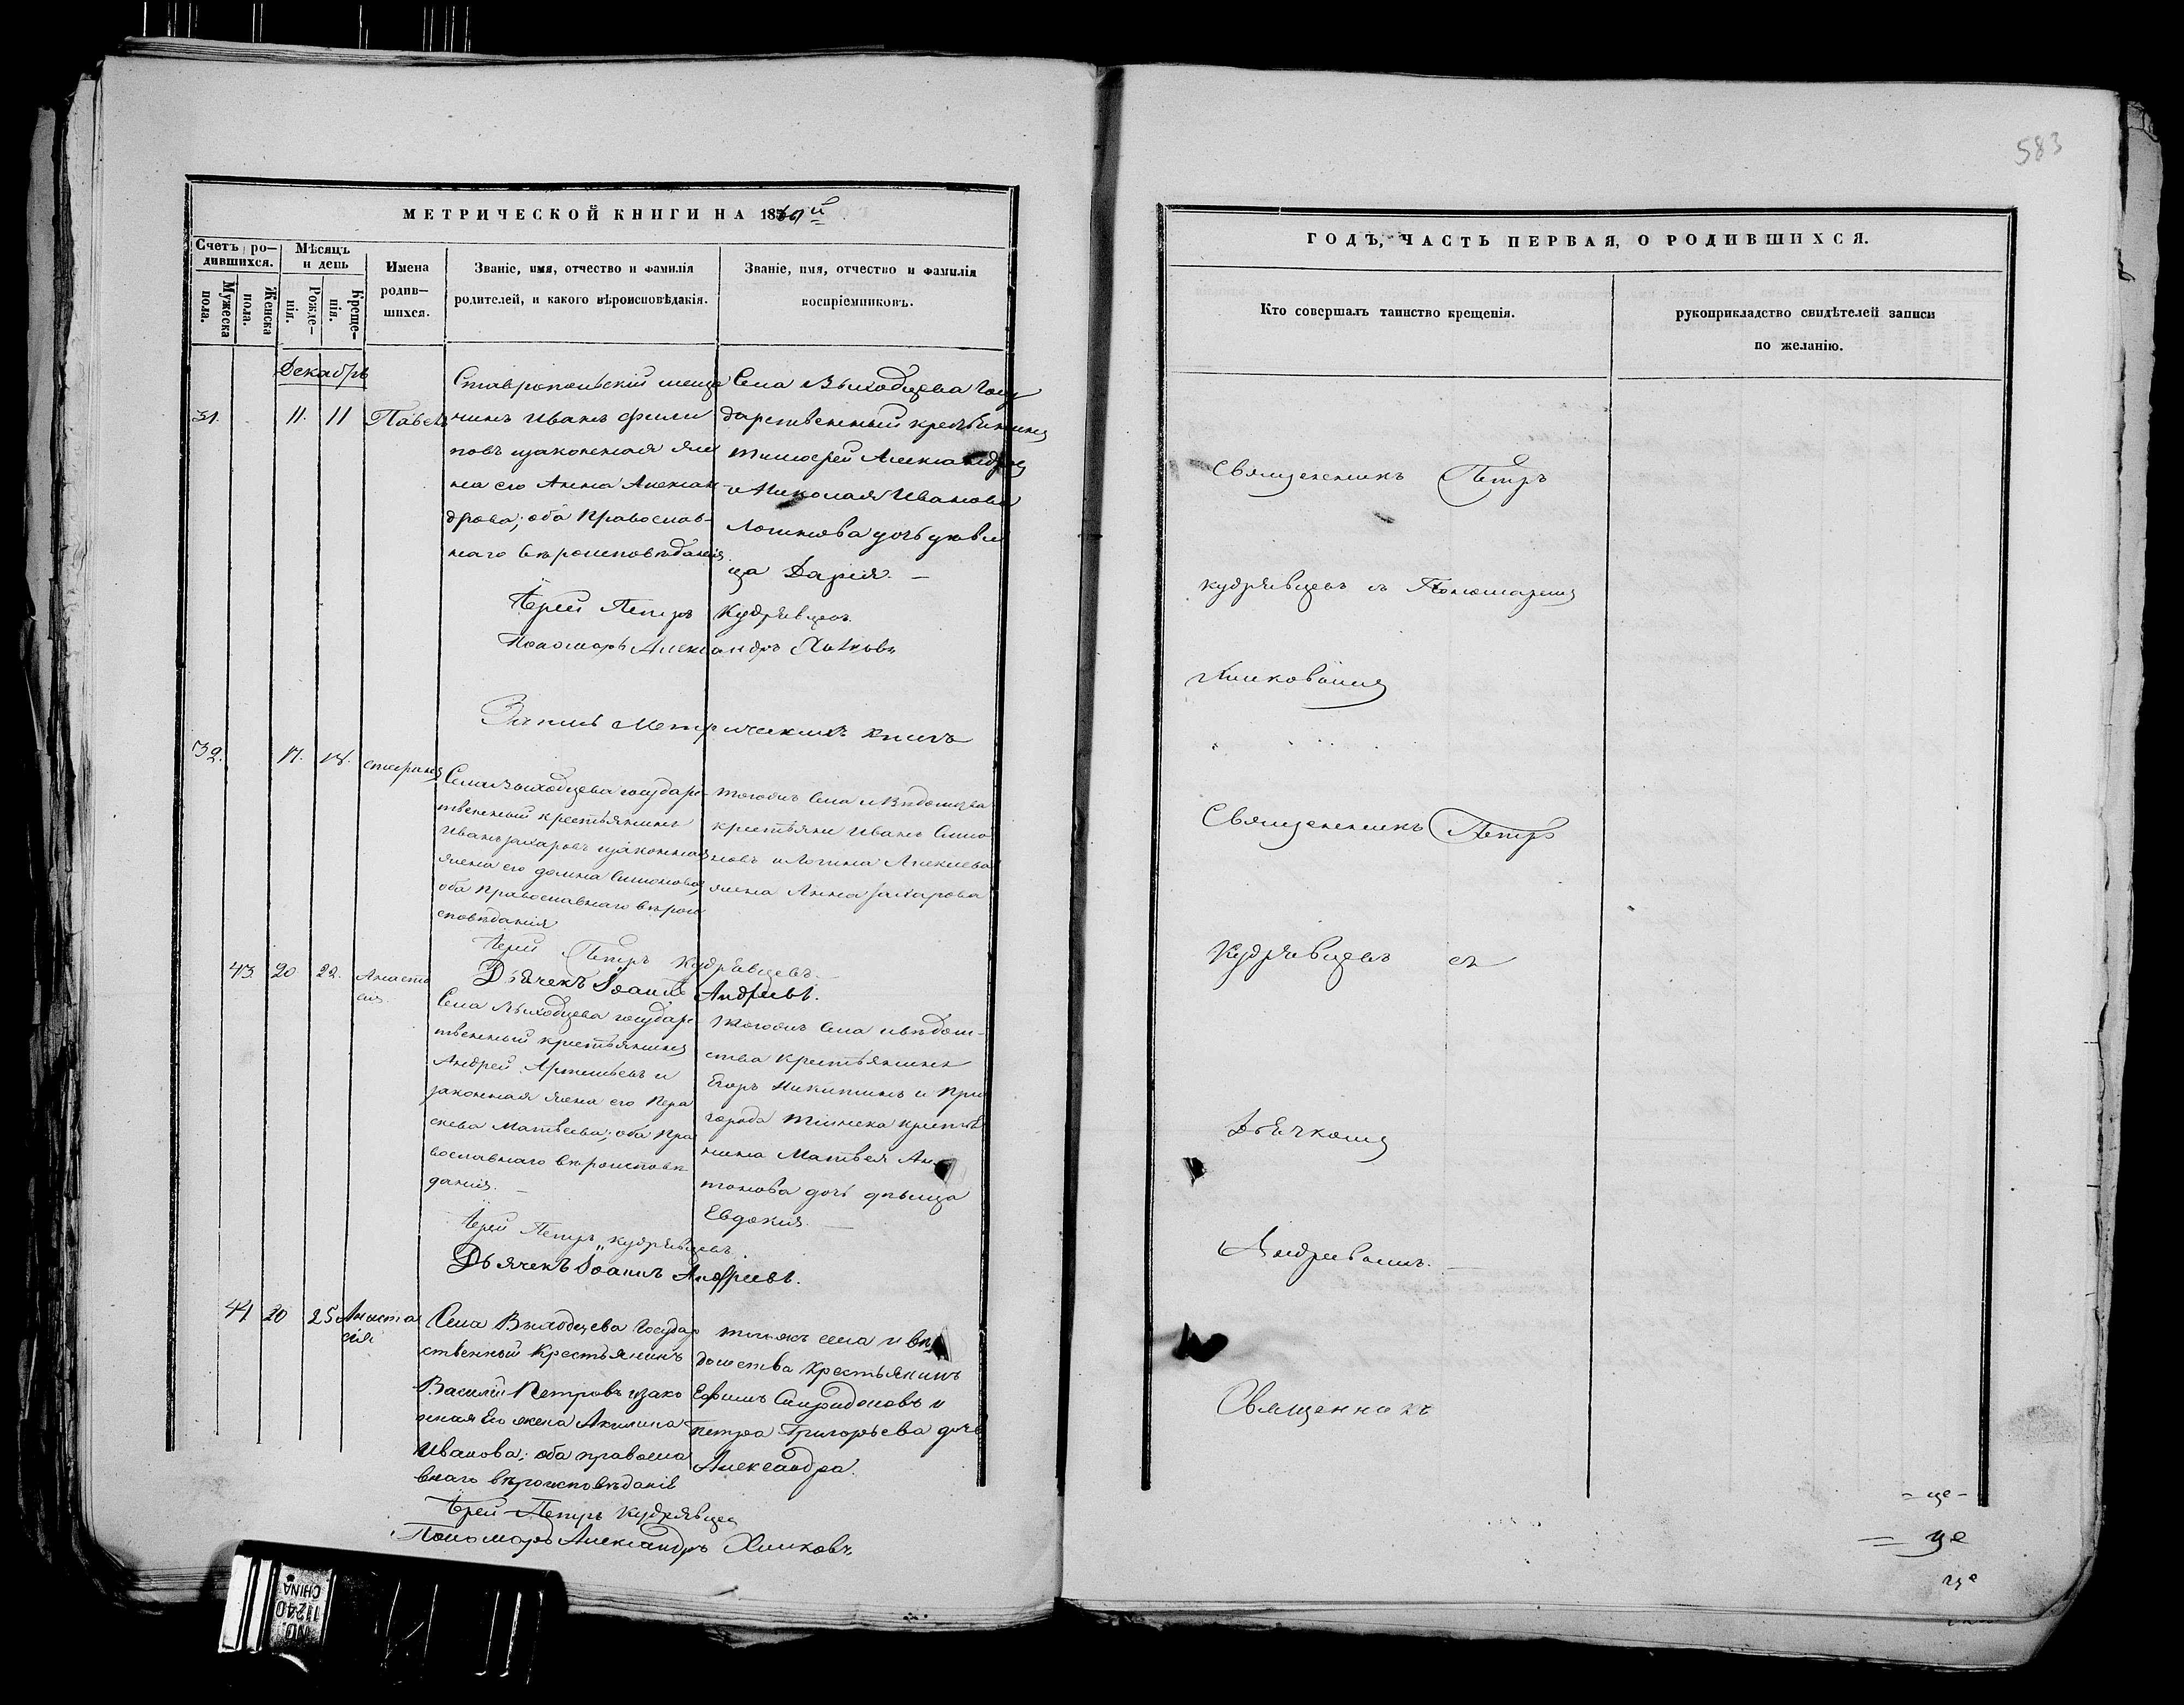 583
МЕТРИЧЕСКОЙ КНИГИ НА 18
Счетъ ро-
дившихся.
Мѣсяцъ
и день
Мужеска
пола.
Женска
пола.
Рожде-
нія.
Креще-
нія.
Имена
родив-
шихся.
Званіе, имя, отчество и фамилія
родителей, и какого вѣроисповѣданія.
Званіе, имя, отчество и фамилія
воспріемниковъ.
Декабрь
31. 11. 11 Павелъ
Ставропольскій меща
нинъ Иванъ Фили
повъ изаконная же
на его Анна Алексан
дрова; оба Православ-
наго вѣроисповѣданія.
Села Выходцева Госу
дарственный крестьянинъ
Тимофей Александров
и Николая Иванова
Логинова дочь девви
ца Дарія. –
Іерей Петръ Кудрявцевъ.
Пономарь Александръ
Запись Метрическихъ книгъ
32. 17. 18.
Села Выходцева государс
твенный крестьянинъ
Иванъ Захаровъ изаконная
жена его Домна Симонова,
оба Православнаго вѣрои
сповѣданія
тогожъ Села и Вѣдомства
крестьяне Иванъ Симо
новъ и Логина Алексѣева
жена Анна Захарова
Іерей Петръ Кудрявцевъ.
Дьячекъ Іоаннъ Андреевъ.
43 20 22. Анаста
сія.
Села Выходцева государс
твенный крестьянинъ
Андрей Артемьевъ и
законная жена его Пара
скева Матвеева; оба Пра
вославнаго вѣроисповѣ
данія. –
тогожъ Села и вѣдом-
ства Крестьянинъ
Егоръ Никитинъ и При
города Тиинска крестья
нина Матвея Ан
тонова дочь дѣвица
Евдокия. –
Іерей Петръ Кудрявцевъ.
Дьячекъ Іоаннъ Андреевъ.
44 20 25 Анаста
сія
Села Выходцева Государ
ственный Крестьянинъ
Василій Петровъ изако
нная Его жена Акилина
Иванова; оба правосла
внаго вѣроисповѣданія
тогожъ села и вѣ
домства Крестьянинъ
Ефимъ Спиридоновъ и
Петра Григорьева дочь
Александра.
Іерей Петръ Кудрявцевъ
Пономарь Александръ
ГОДЪ, ЧАСТЬ ПЕРВАЯ, О РОДИВШИХСЯ.
Кто совершалъ таинство крещенія.
рукоприкладство свидѣтелей записи
по желанію.
Священникъ Петръ
Кудрявцевъ съ Пономаремъ
Священникъ Петръ
Кудрявцевъ съ
Дьячкомъ
Андреевымъ. –
Священникъ
= це -
= це
це
NO.
11240
CHINA